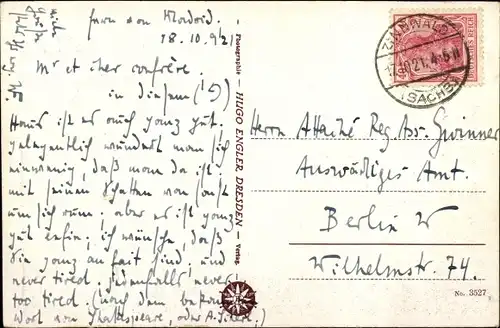 fern von Madrid
18.10.921
Mr et cher confrère.
in diesem (?)
Haus ist es auch ganz gut.
gelegentlich wundert man sich
dass man da ist.
mit seinem Schatten man sonst
um sich rum. aber es ist ganz
gut enfin; ich wünsche, daß
Sie ganz au fait sind. und
never tired. jedenfalls never
too tired. (nach dem
Wort von Shakespeare, oder A.
Photographie HUGO ENGLER, DRESDEN Verlag
No. 3527
ZINNWALD
21.4-5N
(SACHSEN)
Herrn Attaché Reg. Ass. Gwinner
Auswärtiges Amt.
Berlin W
Wilhelmstr. 74.